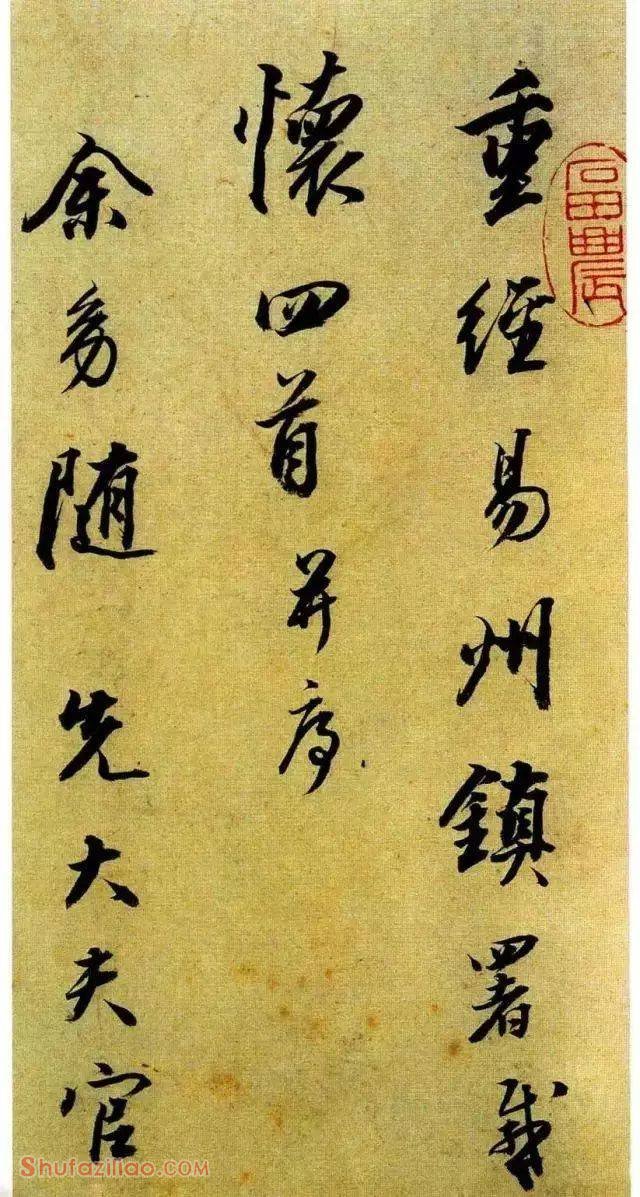 重經易州鎮署感
懷四首并序
余幼随先大夫官
Shufaziliao.COM